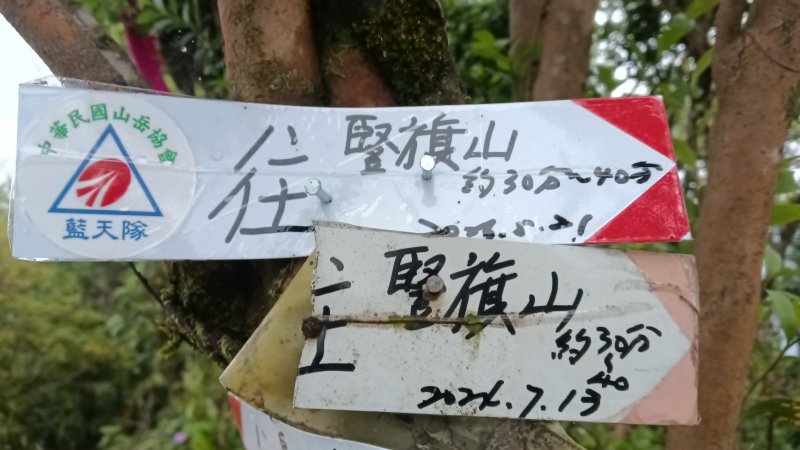 中華民國山岳協會
藍天隊
往
豎旗山
約30分~40分
豎旗山
約30分
~
40